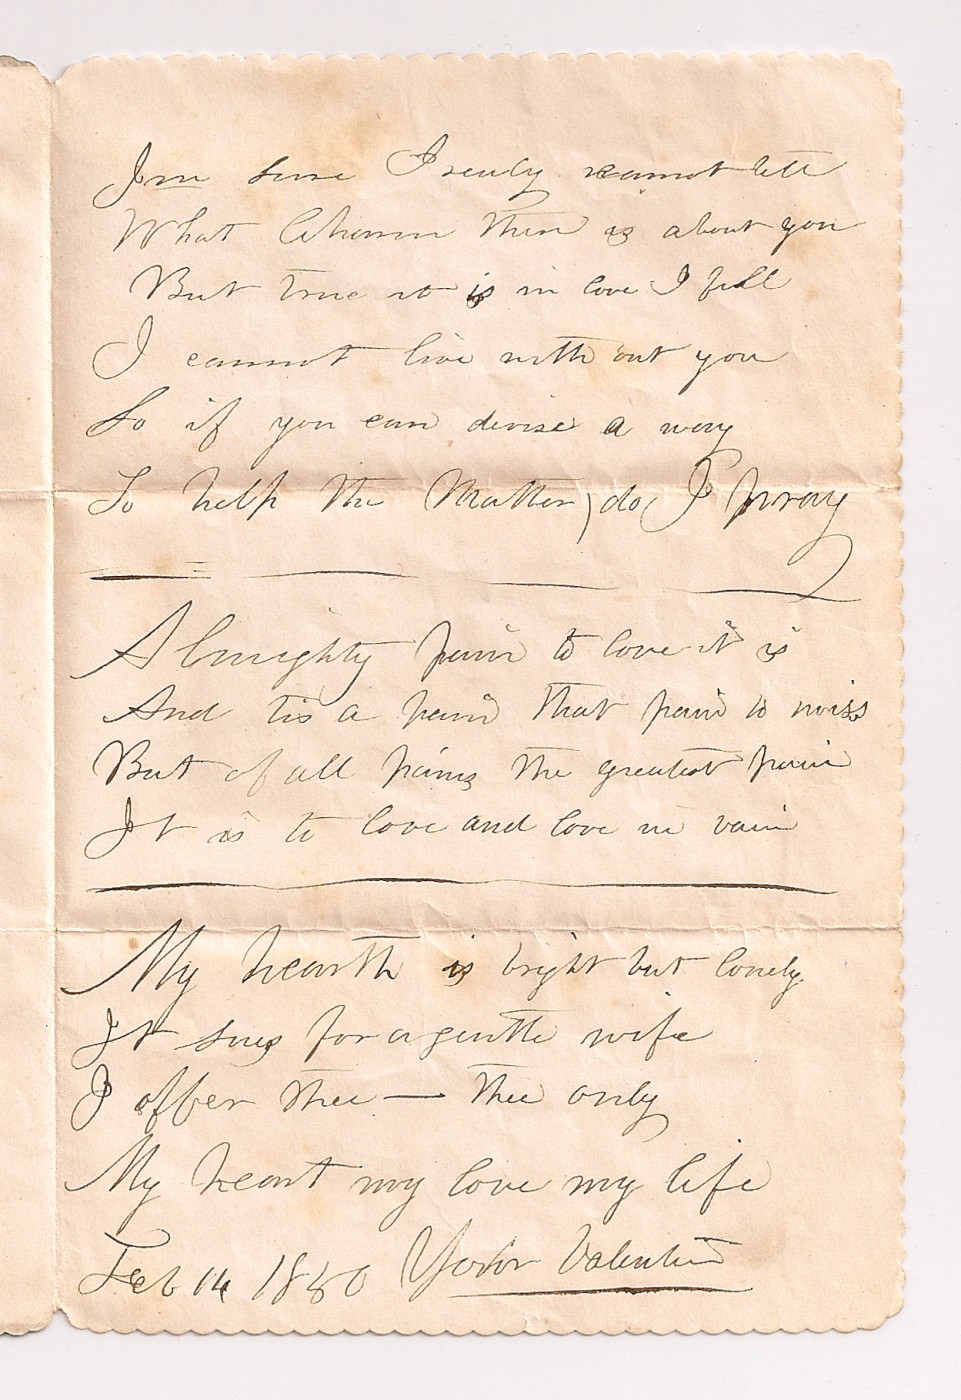 Im sure I realy cannot tell
What Charm there is about you
But true it is in love I fell
I cannot live with out you
So if you can devise a way
To help the Matter, do, I pray
Almighty pain to love it is
And tis a pain that pain to miss
But of all pains the greatest pain
It is to love and love in vain
My hearth is bright but lonely
It sues for a gentle wife
I offer thee — thee only
My heart my love my life
Feb 14 1850 Your Valentine